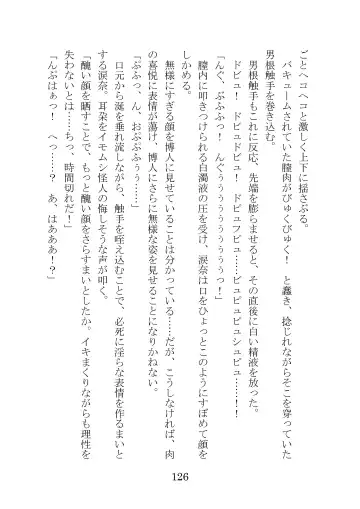 ごとヘコヘコと激しく上下に揺さぶる。
バキュームされていた膣肉がびゅくびゅく！　と蠢き、捻じれながらそこを穿っていた
男根触手を巻き込む。
男根触手もこれに反応、先端を膨らませると、その直後に白い精液を放った。
ドビュ！　ドビュドビュ！　ドビュフビュ……ビュビュビュシュビュ……！！
「んぐ、ぷふふっ！　んぐぅぅぅぅぅぅっ！」
膣内に叩きつけられる白濁液の圧を受け、涙奈は口をひょっとこのようにすぼめて顔を
しかめる。
無様にすぎる顔を博人に見せていることは分かっている……だが、こうしなければ、肉
の喜悦に表情が蕩け、博人にさらに無様な姿を見せることになりかねない。
「ぷふっ、ん、おぷぷふぅぅ……」
口元から涎を垂れ流しながら、触手を咥え込むことで、必死に淫らな表情を作るまいと
する涙奈。耳朶をイモムシ怪人の悔しそうな声が叩く。
「醜い顔を晒すことで、もっと醜い顔をさらすまいとしたか。イキまくりながらも理性を
失わないとは……ちっ、時間切れだ！」
「んぷはぁっ！　へっ……？　あ、はあああ！？」
126